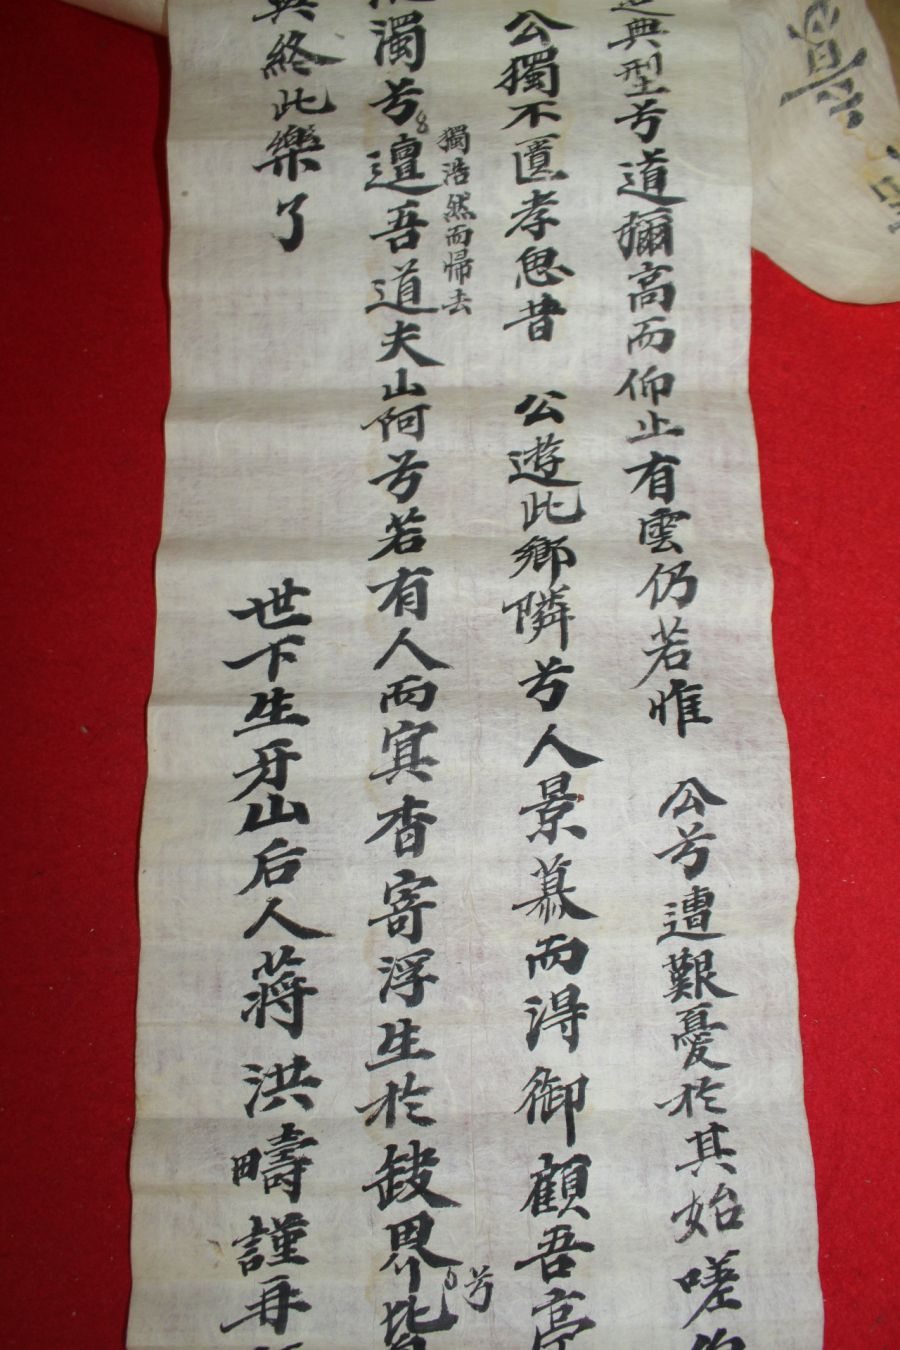 典型兮道彌高而仰止有雲仍若惟 公兮遭艱憂於其始嗟
公獨不匱孝思昔 公遊此鄉隣兮人景慕而得御顧吾亭
獨浩然而歸去
濁兮邅吾道夫山阿兮若有人而冥杳寄浮生於缺界
兮
終此樂了
世下生牙山后人蔣洪疇謹再